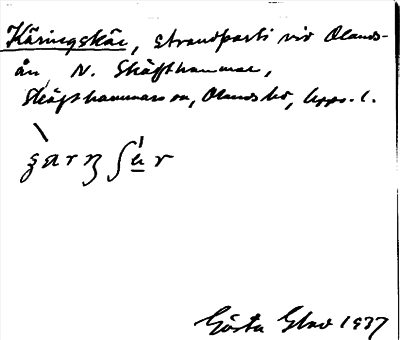 Käringskär, strandparti vid Olands-
ån N. Skäfthammar,
Skäfthammars sn, Olands hd, Upps. l.
Gösta Glad 1937